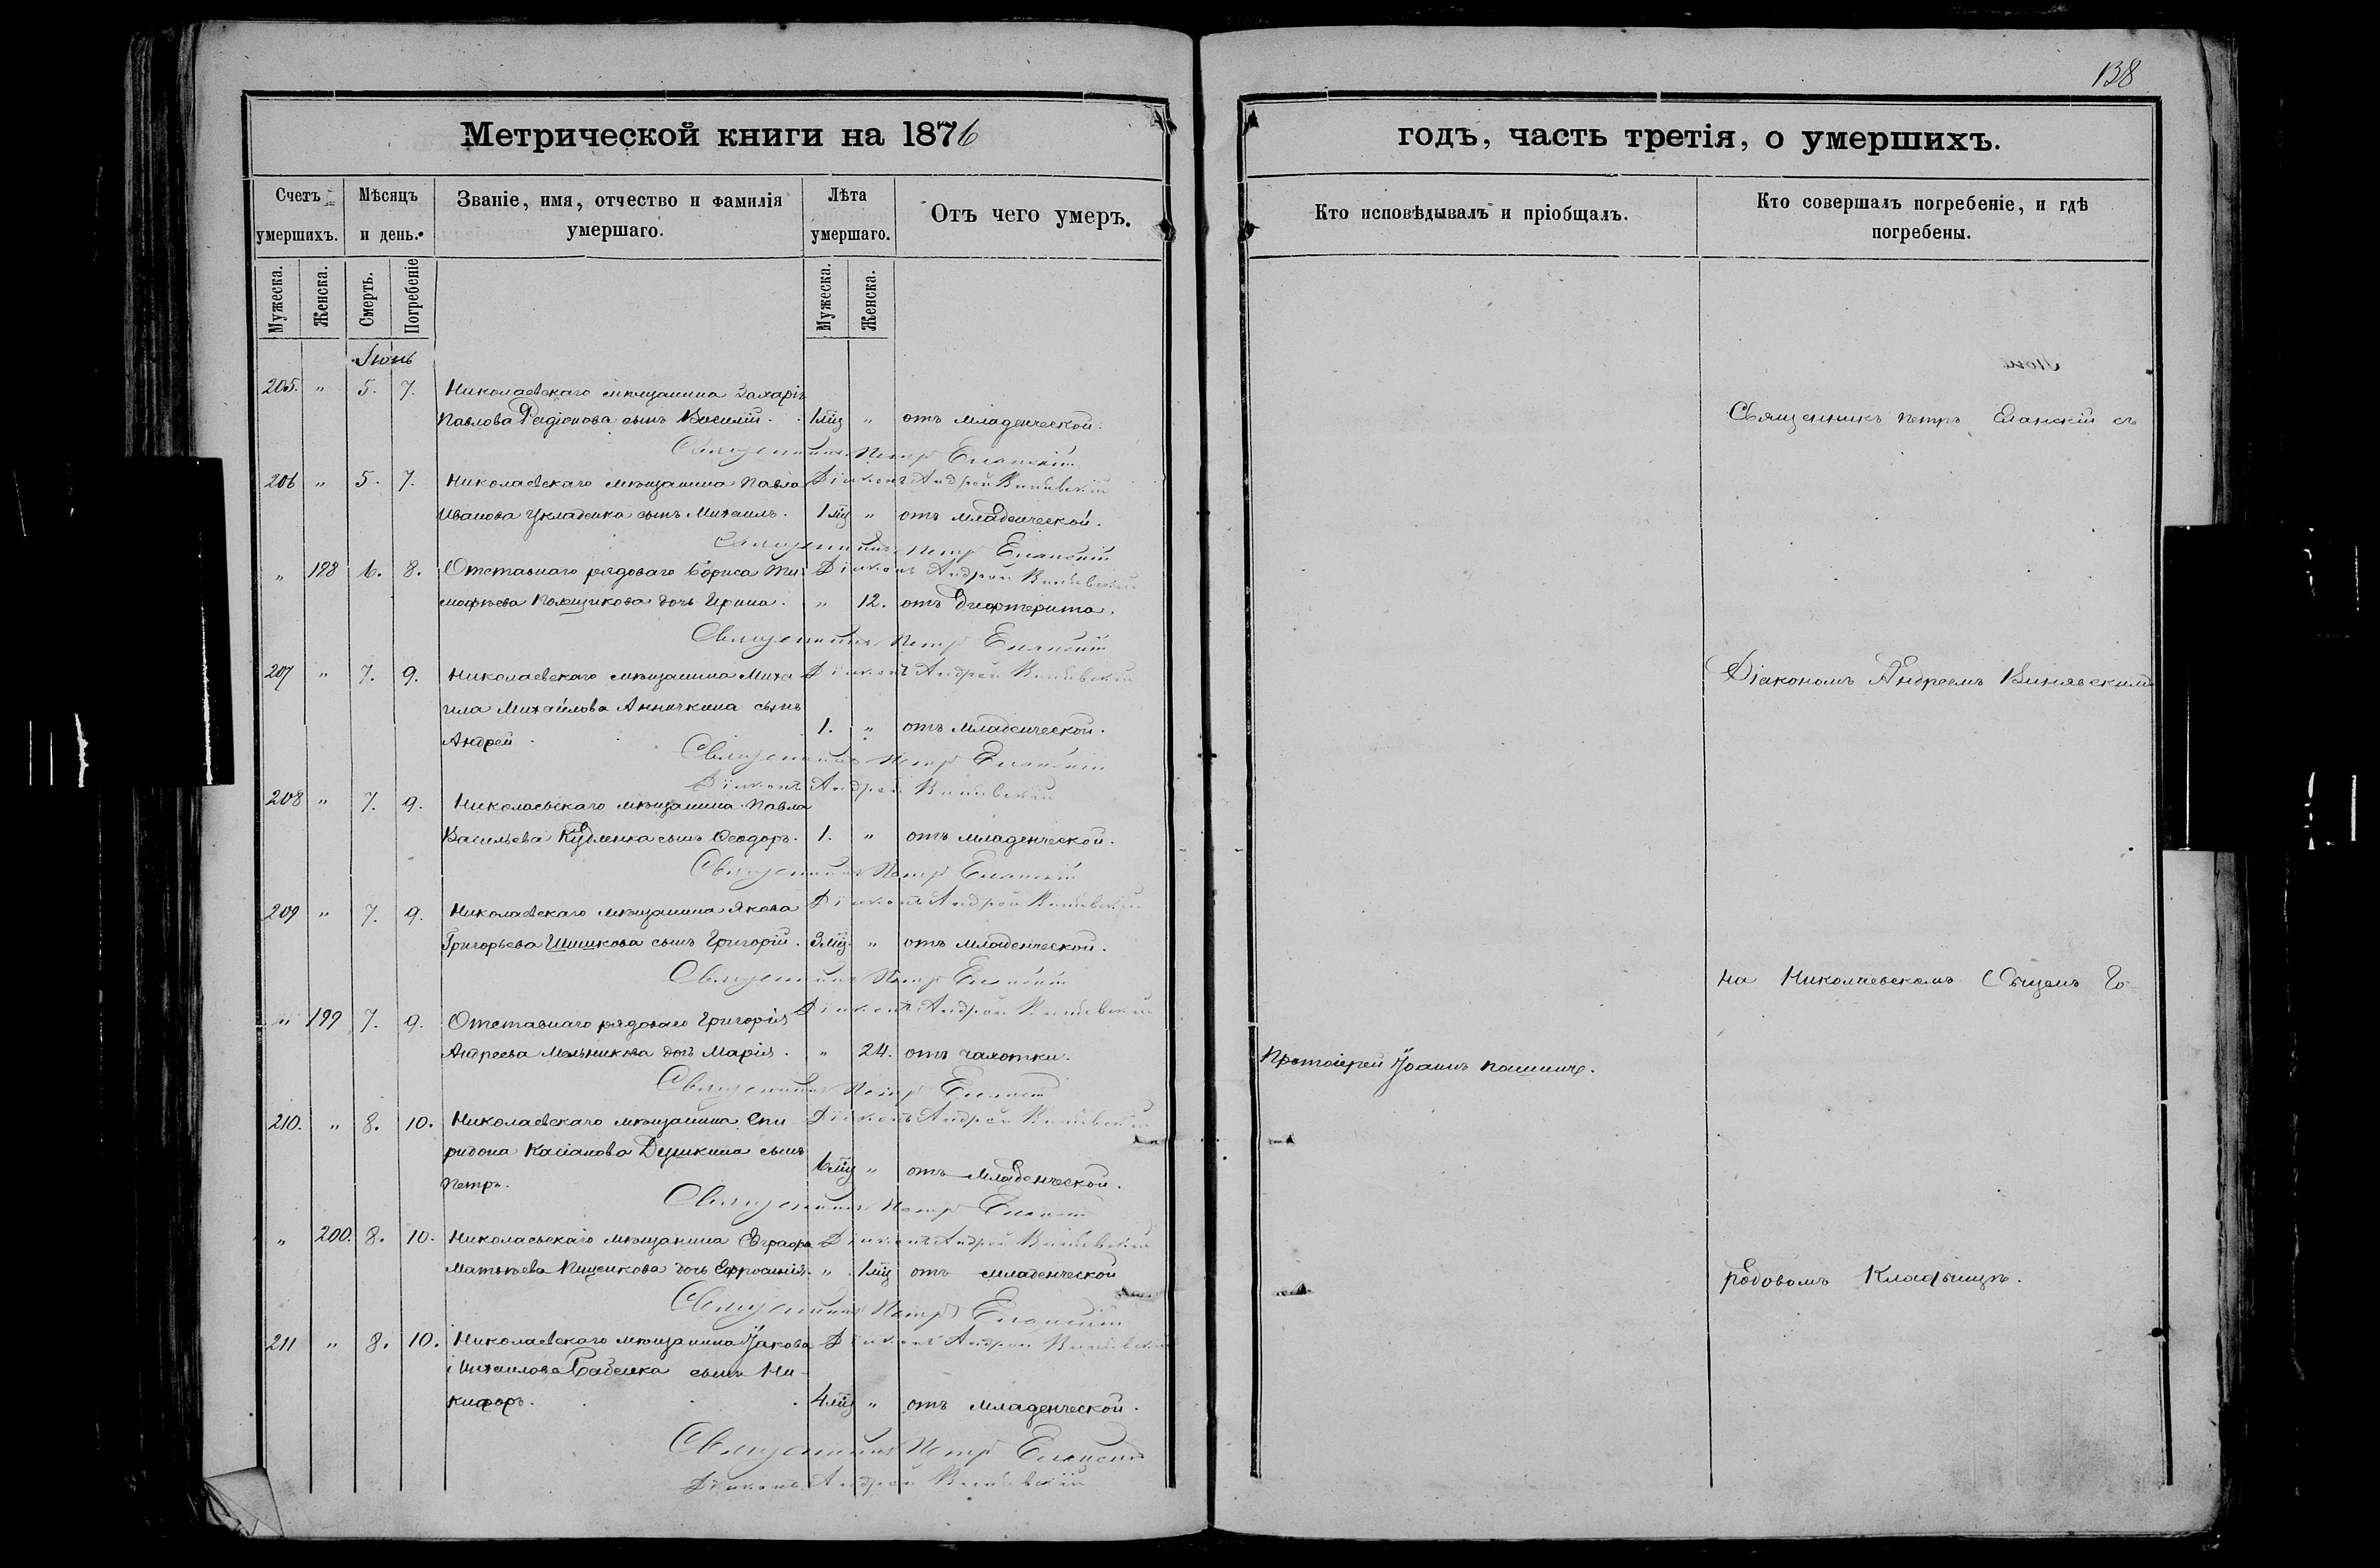 138
Метрической книги на 1876
годъ, часть третія, о умершихъ.
Счетъ умершихъ.
Мѣсяцъ и день.
Званіе, имя, отчество и фамилія умершаго.
Лѣта умершаго.
Отъ чего умеръ.
Кто исповѣдывалъ и пріобщалъ.
Кто совершалъ погребеніе, и гдѣ погребены.
Мужеска.
Женска.
Смерть.
Погребеніе
Мужеска.
Женска.
Іюнь
205. " 5. 7. Николаевскаго мѣщанина Захарія
Павлова Радіонова сынъ Василій. 1 мц " отъ младенческой.
Священникъ Петръ Еланскій
206 " 5. 7. Николаевскаго мѣщанина Павла
Діаконъ Андрей
Иванова Укладенка сынъ Михаилъ. 1 мц " отъ младенческой.
Священникъ Петръ Еланскій
" 198 6. 8. Отставнаго рядоваго Бориса Ти-
Діаконъ Андрей
мофѣева дочь Ирина. " 12. отъ дифтерита.
Священникъ Петръ Еланскій
207 " 7. 9. Николаевскаго мѣщанина Миха-
Діаконъ Андрей
ила Михайлова Анничкина сынъ
Андрей. 1. " отъ младенческой.
Священникъ Петръ Еланскій
Діаконъ Андрей
208 " 7. 9. Николаевскаго мѣщанина Павла
Васильева сынъ Ѳеодоръ. 1. " отъ младенческой.
Священникъ Петръ Еланскій
209 " 7. 9. Николаевскаго мѣщанина Якова
Діаконъ Андрей
Григорьева Шишкова сынъ Григорій. 3 мц. " отъ младенческой.
Священникъ Петръ Еланскій
" 199 7. 9. Отставнаго рядоваго Григорія
Діаконъ Андрей
Андреева Мельникова дочь Марія. " 24. отъ чахотки.
Священникъ Петръ Еланскій
210. " 8. 10. Николаевскаго мѣщанина Спи-
Діаконъ Андрей
ридона Касіанова Душкина сынъ
Петръ. 6 мц " отъ младенческой.
Священникъ Петръ Еланскій
" 200. 8. 10. Николаевскаго мѣщанина Евграфа
Діаконъ Андрей
Матвѣева Пищикова дочь Ефросинія. " 1 мц отъ младенческой
Священникъ Петръ Еланскій
211 " 8. 10. Николаевскаго мѣщанина Іакова
Діаконъ Андрей
Михаилова Бабенка сынъ Ни-
кифоръ. 4 мц " отъ младенческой.
Священникъ Петръ Еланскій
Діаконъ Андрей
Священникъ Петръ Еланскій съ
Діакономъ Андреемъ
на Николаевскомъ Общемъ Го-
Протоіерей Іоаннъ
родовомъ Кладбищѣ.